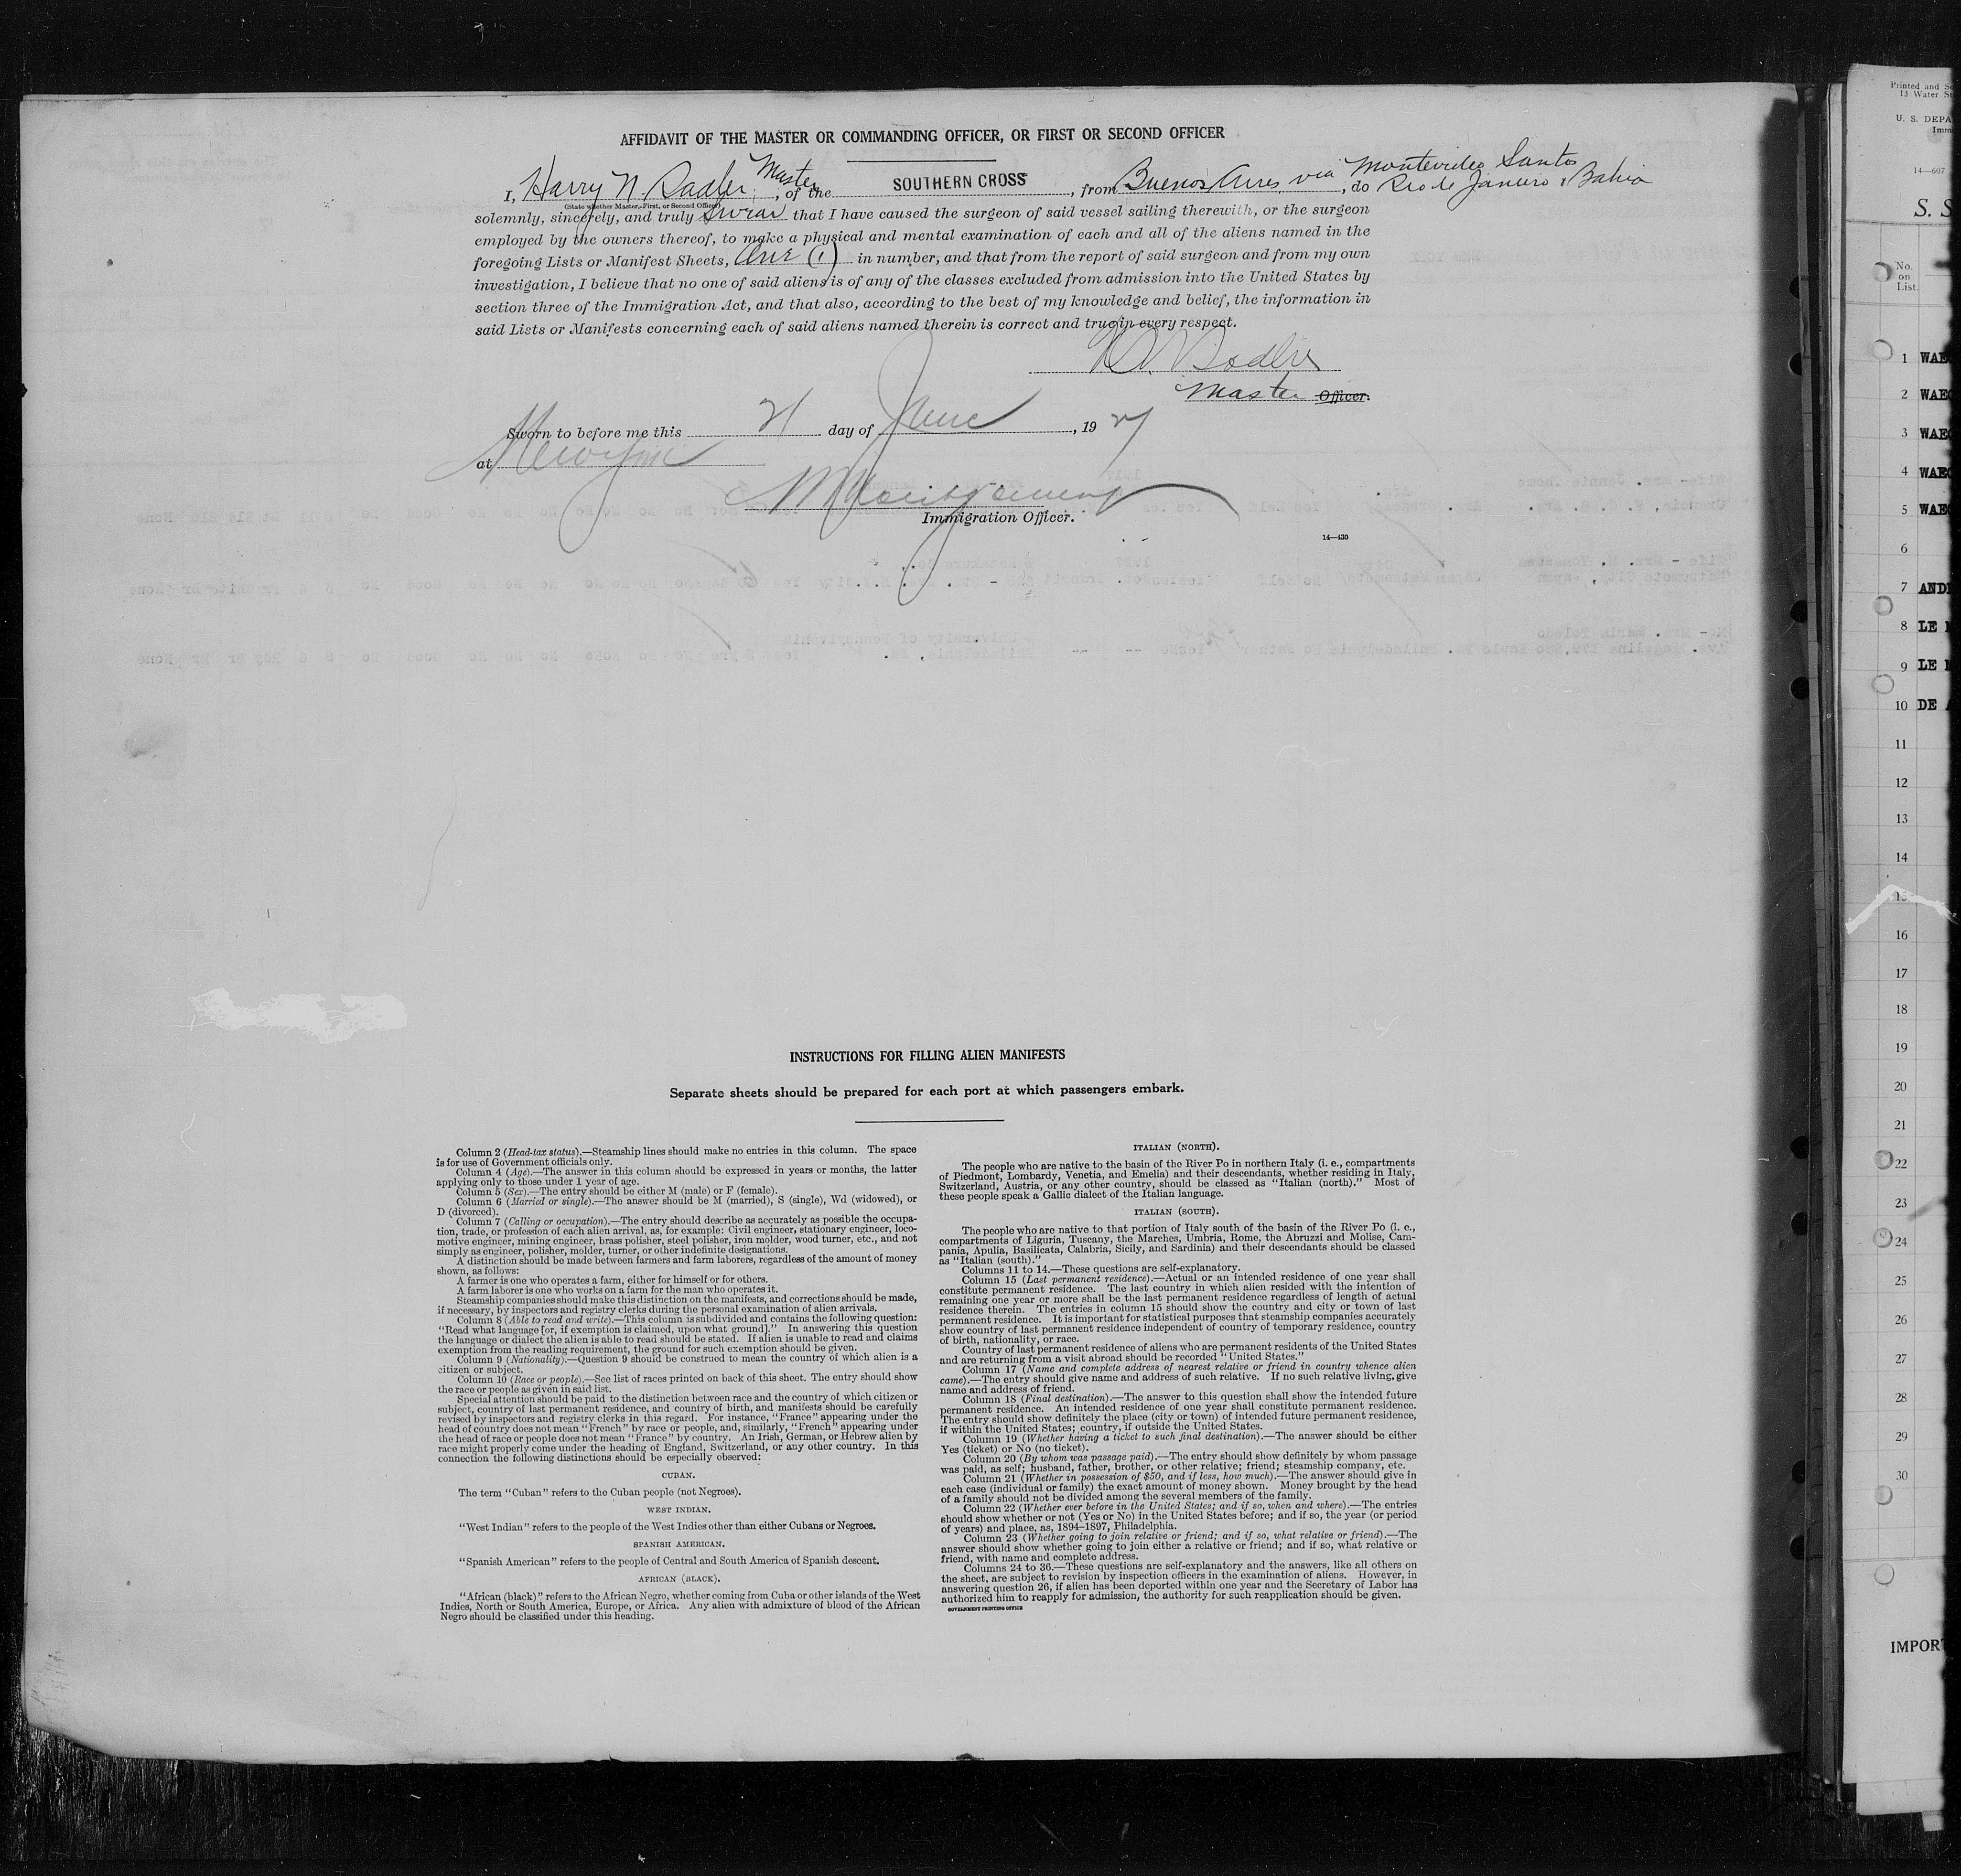 AFFIDAVIT OF THE MASTER OR COMMANDING OFFICER, OR FIRST OR SECOND OFFICER
I, Harry N. Sadler, Master, of the SOUTHERN CROSS, from Buenos Aires via Montevideo Santos, do Rio de Janeiro & Bahia
(State whether Master, First, or Second Officer)
solemnly, sincerely, and truly swear that I have caused the surgeon of said vessel sailing therewith, or the surgeon
employed by the owners thereof, to make a physical and mental examination of each and all of the aliens named in the
foregoing Lists or Manifest Sheets, One (1) in number, and that from the report of said surgeon and from my own
investigation, I believe that no one of said aliens is of any of the classes excluded from admission into the United States by
section three of the Immigration Act, and that also, according to the best of my knowledge and belief, the information in
said Lists or Manifests concerning each of said aliens named therein is correct and true in every respect.
H. N. Sadler
Master Officer.
Sworn to before me this 21 day of June, 1927
at New York
Montgomery
Immigration Officer.
14—430
INSTRUCTIONS FOR FILLING ALIEN MANIFESTS
Separate sheets should be prepared for each port at which passengers embark.
Column 2 (Head-tax status).—Steamship lines should make no entries in this column. The space
is for use of Government officials only.
Column 4 (Age).—The answer in this column should be expressed in years or months, the latter
applying only to those under 1 year of age.
Column 5 (Sex).—The entry should be either M (male) or F (female).
Column 6 (Married or single).—The answer should be M (married), S (single), Wd (widowed), or
D (divorced).
Column 7 (Calling or occupation).—The entry should describe as accurately as possible the occupa-
tion, trade, or profession of each alien arrival, as, for example: Civil engineer, stationary engineer, loco-
motive engineer, mining engineer, brass polisher, steel polisher, iron molder, wood turner, etc., and not
simply as engineer, polisher, molder, turner, or other indefinite designations.
A distinction should be made between farmers and farm laborers, regardless of the amount of money
shown, as follows:
A farmer is one who operates a farm, either for himself or for others.
A farm laborer is one who works on a farm for the man who operates it.
Steamship companies should make this distinction on the manifests, and corrections should be made,
if necessary, by inspectors and registry clerks during the personal examination of alien arrivals.
Column 8 (Able to read and write).—This column is subdivided and contains the following question:
"Read what language [or, if exemption is claimed, upon what ground]." In answering this question
the language or dialect the alien is able to read should be stated. If alien is unable to read and claims
exemption from the reading requirement, the ground for such exemption should be given.
Column 9 (Nationality).—Question 9 should be construed to mean the country of which alien is a
citizen or subject.
Column 10 (Race or people).—See list of races printed on back of this sheet. The entry should show
the race or people as given in said list.
Special attention should be paid to the distinction between race and the country of which citizen or
subject, country of last permanent residence, and country of birth, and manifests should be carefully
revised by inspectors and registry clerks in this regard. For instance, "France" appearing under the
head of country does not mean "French" by race or people, and, similarly, "French" appearing under
the head of race or people does not mean "France" by country. An Irish, German, or Hebrew alien by
race might properly come under the heading of England, Switzerland, or any other country. In this
connection the following distinctions should be especially observed:
CUBAN.
The term "Cuban" refers to the Cuban people (not Negroes).
WEST INDIAN.
"West Indian" refers to the people of the West Indies other than either Cubans or Negroes.
SPANISH AMERICAN.
"Spanish American" refers to the people of Central and South America of Spanish descent.
AFRICAN (BLACK).
"African (black)" refers to the African Negro, whether coming from Cuba or other islands of the West
Indies, North or South America, Europe, or Africa. Any alien with admixture of blood of the African
Negro should be classified under this heading.
ITALIAN (NORTH).
The people who are native to the basin of the River Po in northern Italy (i. e., compartments
of Piedmont, Lombardy, Venetia, and Emelia) and their descendants, whether residing in Italy,
Switzerland, Austria, or any other country, should be classed as "Italian (north)." Most of
these people speak a Gallic dialect of the Italian language.
ITALIAN (SOUTH).
The people who are native to that portion of Italy south of the basin of the River Po (i. e.,
compartments of Liguria, Tuscany, the Marches, Umbria, Rome, the Abruzzi and Molise, Cam-
pania, Apulia, Basilicata, Calabria, Sicily, and Sardinia) and their descendants should be classed
as "Italian (south)."
Columns 11 to 14.—These questions are self-explanatory.
Column 15 (Last permanent residence).—Actual or an intended residence of one year shall
constitute permanent residence. The last country in which alien resided with the intention of
remaining one year or more shall be the last permanent residence regardless of length of actual
residence therein. The entries in column 15 should show the country and city or town of last
permanent residence. It is important for statistical purposes that steamship companies accurately
show country of last permanent residence independent of country of temporary residence, country
of birth, nationality, or race.
Country of last permanent residence of aliens who are permanent residents of the United States
and are returning from a visit abroad should be recorded "United States."
Column 17 (Name and complete address of nearest relative or friend in country whence alien
came).—The entry should give name and address of such relative. If no such relative living, give
name and address of friend.
Column 18 (Final destination).—The answer to this question shall show the intended future
permanent residence. An intended residence of one year shall constitute permanent residence.
The entry should show definitely the place (city or town) of intended future permanent residence,
if within the United States; country, if outside the United States.
Column 19 (Whether having a ticket to such final destination).—The answer should be either
Yes (ticket) or No (no ticket).
Column 20 (By whom was passage paid).—The entry should show definitely by whom passage
was paid, as self; husband, father, brother, or other relative; friend; steamship company, etc.
Column 21 (Whether in possession of $50, and if less, how much).—The answer should give in
each case (individual or family) the exact amount of money shown. Money brought by the head
of a family should not be divided among the several members of the family.
Column 22 (Whether ever before in the United States; and if so, when and where).—The entries
should show whether or not (Yes or No) in the United States before; and if so, the year (or period
of years) and place, as, 1894–1897, Philadelphia.
Column 23 (Whether going to join relative or friend; and if so, what relative or friend).—The
answer should show whether going to join either a relative or friend; and if so, what relative or
friend, with name and complete address.
Columns 24 to 36.—These questions are self-explanatory and the answers, like all others on
the sheet, are subject to revision by inspection officers in the examination of aliens. However, in
answering question 26, if alien has been deported within one year and the Secretary of Labor has
authorized him to reapply for admission, the authority for such reapplication should be given.
GOVERNMENT PRINTING OFFICE
Printed and
13 Water
U. S. DEPA
Imm
14—607
S. S
No.
on
List.
1 WAE
2 WAE
3 WAE
4 WAE
5 WAE
6
7 AND
8 LE
9 LE
10 DE
11
12
13
14
15
16
17
18
19
20
21
22
23
24
25
26
27
28
29
30
IMPOR